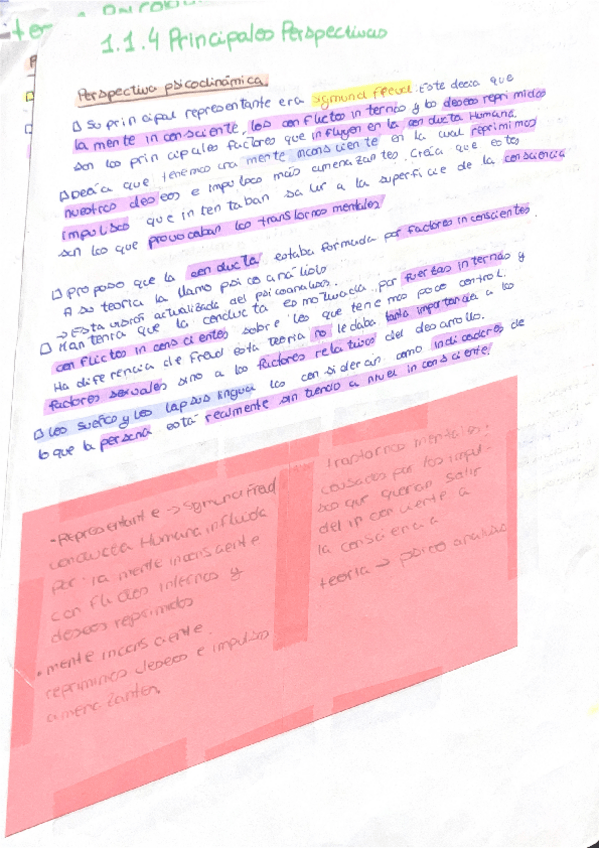 1.1.4 Principales Perspectivas
Perspectiva psicodinámica
Su principal representante era Sigmund Freud. Este decia que
la mente inconsciente, los conflictos internos y los deseos reprimidos
son los principales factores que influyen en la conducta Humana.
Decia que tenemos una mente inconsciente en la cual reprimimos
nuestros deseos e impulsos más amenazantes. Creía que estos
impulsos que intentaban salir a la superficie de la consciencia
son los que provocaban los transtornos mentales
Proposo que la conducta estaba formada por factores inconscientes.
A su teoria la llamo psicoanálisis
→ Esta visión actualizada del psicoanalisis.
Mantenia que la conducta es motivada por fuerzas internas y
conflictos inconscientes sobre los que tenemos poco control.
Ha diferencia de Freud esta teoria no le daba tanta importancia a los
factores sexuales sino a los factores relativos del desarrollo.
Los sueños y los lapsus lingua los consideran como indicadores de
lo que la persona está realmente sintiendo a nivel inconsciente.
• Representante → Sigmund Freud
conducta Humana influida
por la mente inconsciente
conflictos internos y
deseos reprimidos
• mente inconsciente.
reprimimos deseos e impulsos
amenazantes.
Trastornos mentales.
causados por los impul-
sos que querian salir
del inconciente a
la consciencia
teoria → psicoanalisis